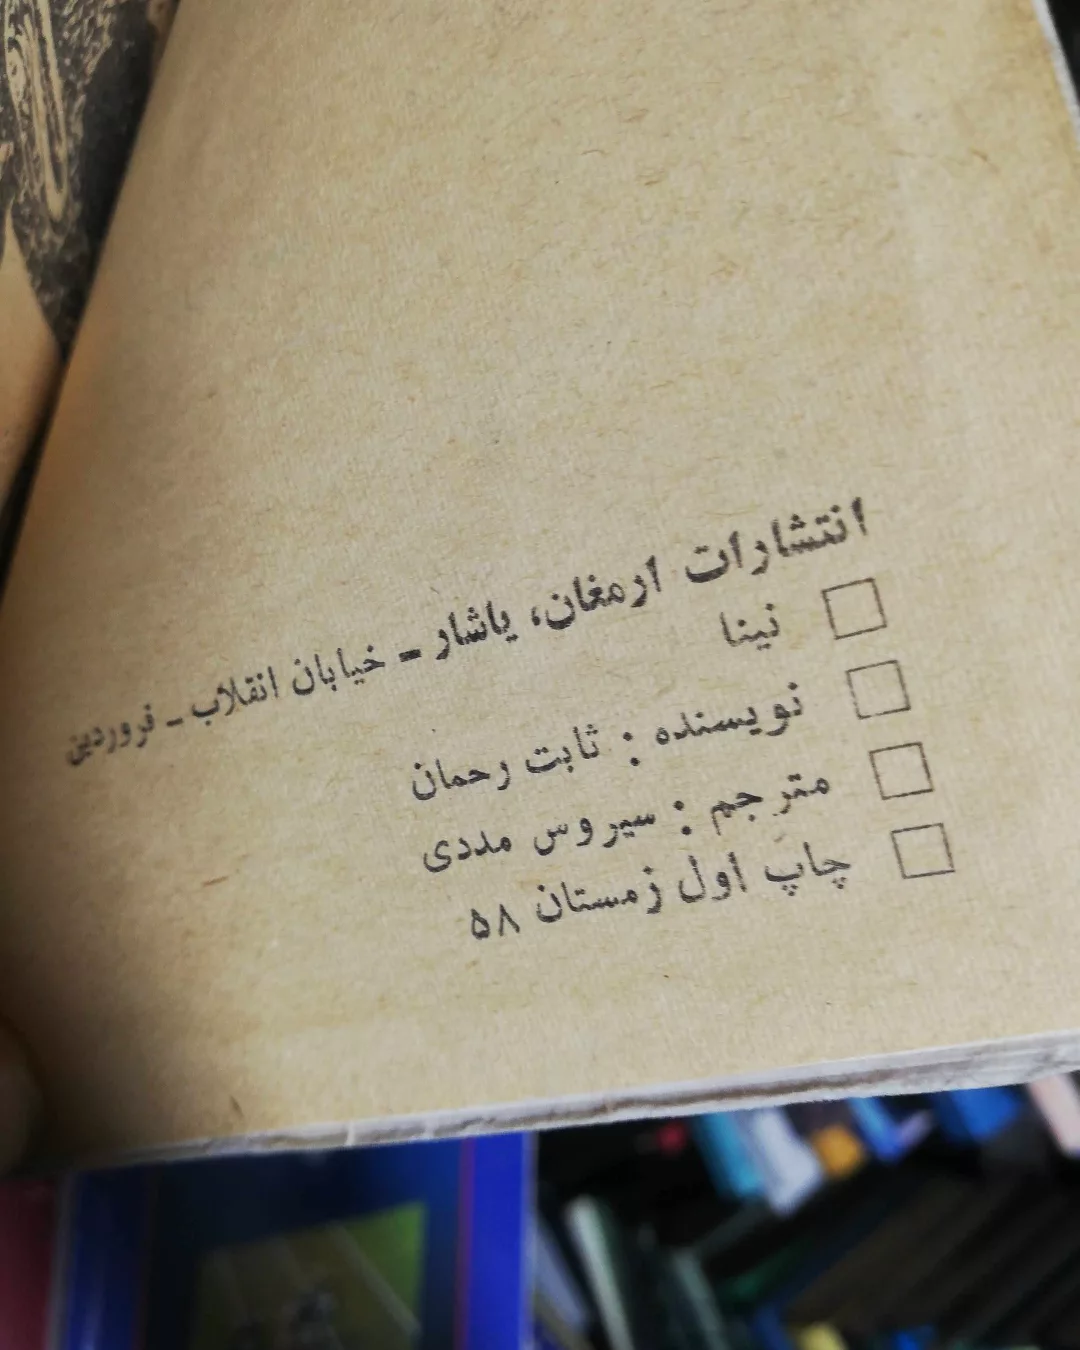 انتشارات ارمغان، یاشار ـ خیابان انقلاب ـ فروردین
□ نینا
□ نویسنده : ثابت رحمان
□ مترجم : سیروس مددی
□ چاپ اول زمستان ۵۸